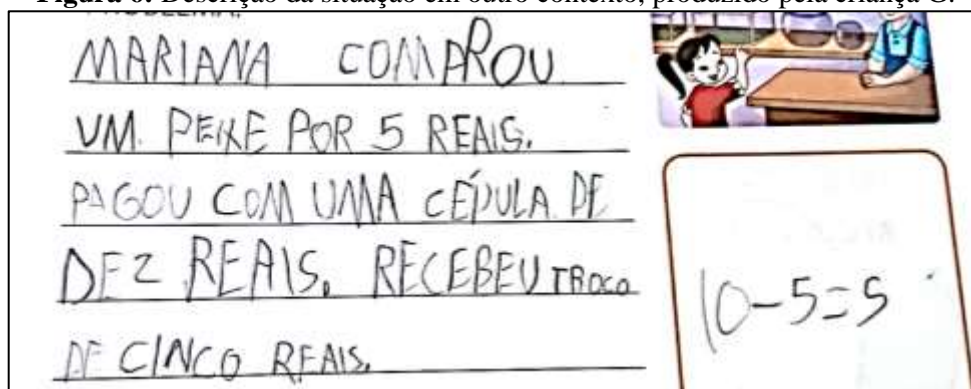 Figura 6: Descrição da situação em outro contexto, produzido pela criança G.
PROBLEMA:
MARIANA COMPROU
UM PEIXE POR 5 REAIS.
PAGOU COM UMA CÉDULA DE
DEZ REAIS. RECEBEU TROCO
DE CINCO REAIS.
10-5=5